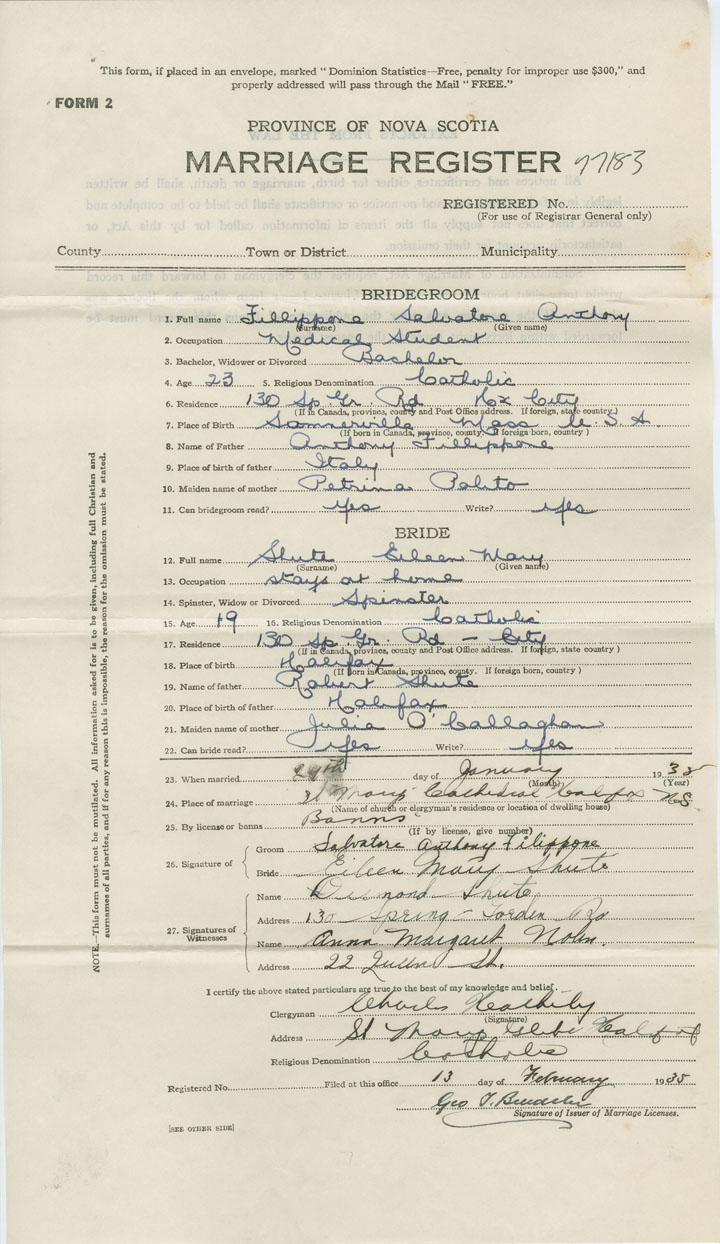 This form, if placed in an envelope, marked "Dominion Statistics—Free, penalty for improper use $300," and
properly addressed will pass through the Mail "FREE."
FORM 2
PROVINCE OF NOVA SCOTIA
MARRIAGE REGISTER 97183
REGISTERED No.
(For use of Registrar General only)
County Town or District Municipality
BRIDEGROOM
1. Full name Fillippone Salvatore Anthony
(Surname) (Given name)
2. Occupation Medical Student
3. Bachelor, Widower or Divorced Bachelor
4. Age 23 5. Religious Denomination Catholic
6. Residence 130 Sp. Gr. Rd Hx City
(If in Canada, province, county and Post Office address. If foreign, state country)
7. Place of Birth Sommerville Mass U. S. A.
(If born in Canada, province, county. If foreign born, country)
8. Name of Father Anthony Fillippone
9. Place of birth of father Italy
10. Maiden name of mother Petrina Polito
11. Can bridegroom read? Yes Write? Yes
BRIDE
12. Full name Shute Eileen Mary
(Surname) (Given name)
13. Occupation stays at home
14. Spinster, Widow or Divorced Spinster
15. Age 19 16. Religious Denomination Catholic
17. Residence 130 Sp. Gr. Rd - City
(If in Canada, province, county and Post Office address. If foreign, state country)
18. Place of birth Halifax
(If born in Canada, province, county. If foreign born, country)
19. Name of father Robert Shute
20. Place of birth of father Halifax
21. Maiden name of mother Julia O'Callaghan
22. Can bride read? Yes Write? Yes
23. When married 29th day of January 1935
(Month) (Year)
24. Place of marriage St Marys Cathedral Halifax N.S.
(Name of church or clergyman's residence or location of dwelling house)
25. By license or banns Banns
(If by license, give number)
26. Signature of
Groom Salvatore Anthony Filippone
Bride Eileen Mary Shute
27. Signatures of Witnesses
Name Desmond Shute
Address 130 Spring Garden Rd
Name Anna Margaret Nolan
Address 22 Queen St.
I certify the above stated particulars are true to the best of my knowledge and belief.
Clergyman Charles
(Signature)
Address St Marys Glebe Halifax
Religious Denomination Catholic
Registered No. Filed at this office 13 day of February 1935
Geo T.
Signature of Issuer of Marriage Licenses.
[SEE OTHER SIDE]
NOTE.—This form must not be mutilated. All information asked for is to be given, including full Christian and
surnames of all parties, and if for any reason this is impossible, the reason for the omission must be stated.